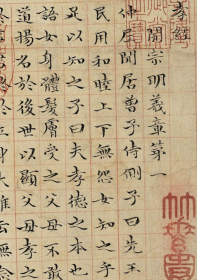 孝經
開宗明義章第一
仲尼閒居曾子侍側子曰先王
民用和睦上下無怨女知之乎
足以知之子曰夫孝德之本也
語女身體髮膚受之父母不敢
道揚名於後世以顯父母孝之
於立身大雅云無念